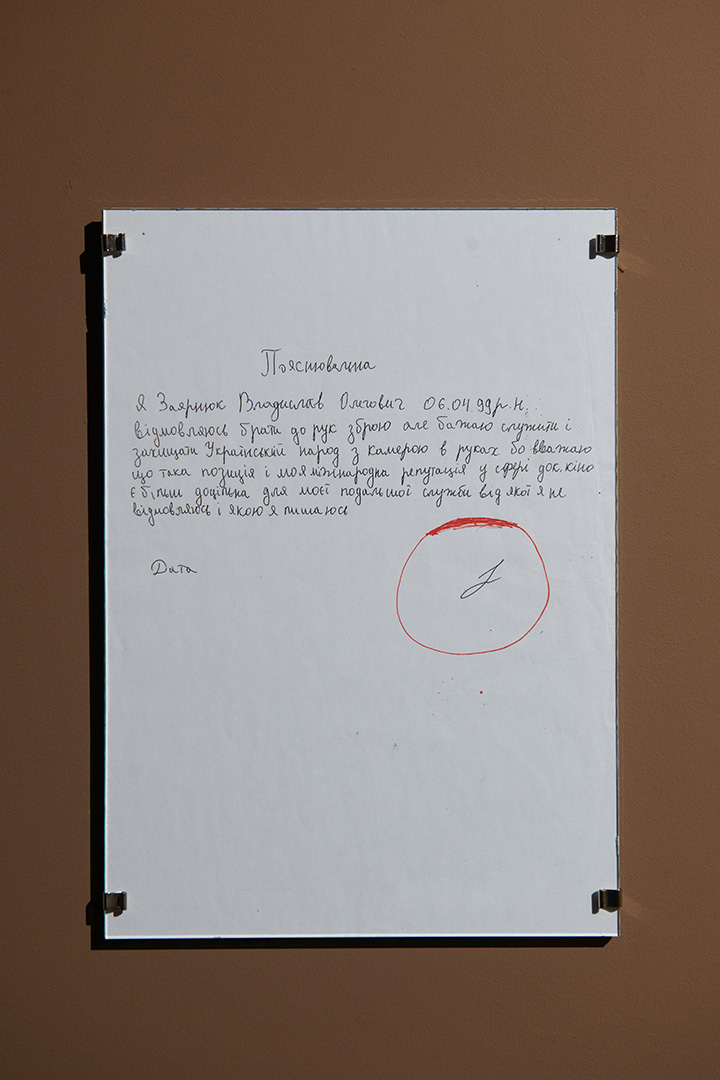 Пояснювальна
Я Заярнюк Владислав Олегович 06.04.99р.н.
відмовляюсь брати до рук зброю але бажаю служити і
захищати Український народ з камерою в руках бо вважаю
що така позиція і моя міжнародна репутація у сфері док.кіно
є більш доцільна для моєї подальшої служби від якої я не
відмовляюсь і якою я пишаюсь
Дата